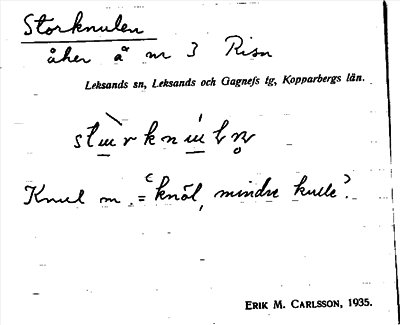 Storknulen
åker å nr 3 Risa
Leksands sn, Leksands och Gagnefs tg, Kopparbergs län.
Knul m. = 'knöl, mindre kulle'.
ERIK M. CARLSSON, 1935.